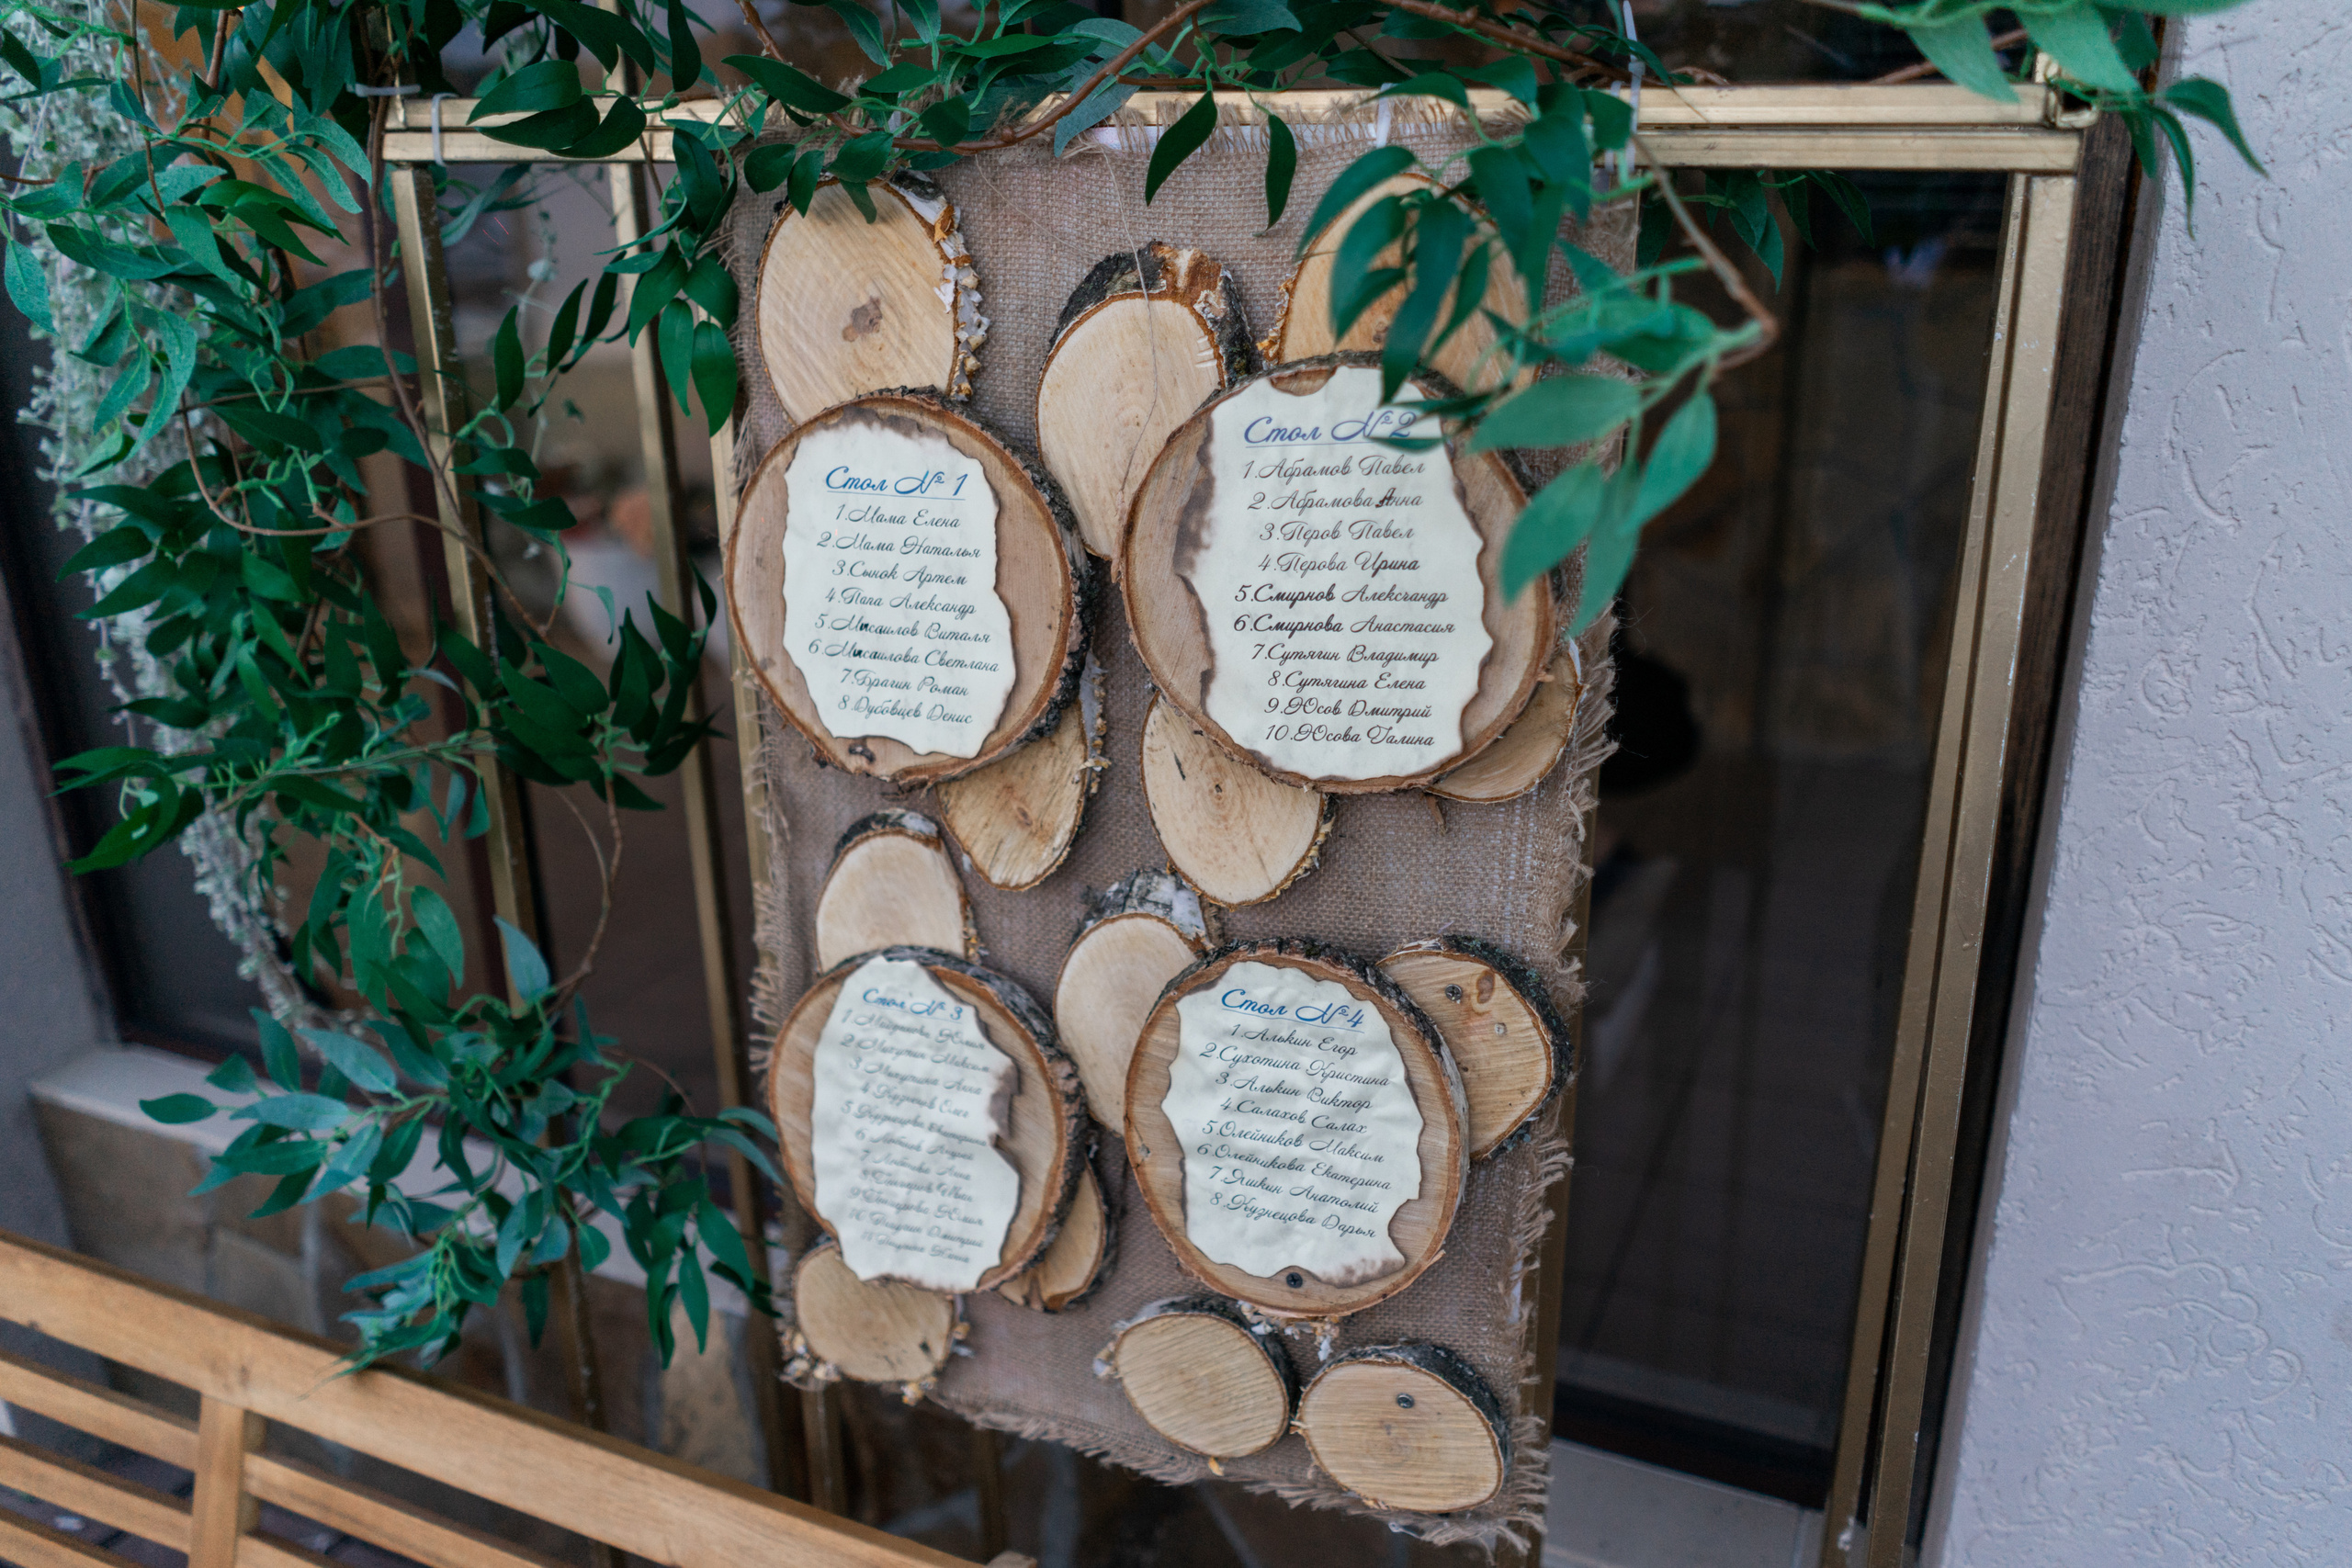 Стол № 1
1.Мама Елена
2.Мама Наталья
3.Сынок Артем
4.Папа Александр
5.Мисаилов Виталя
6.Мисаилова Светлана
7.Брагин Роман
8.Дубовцев Денис
Стол №2
1.Абрамов Павел
2.Абрамова Анна
3.Перов Павел
4.Перова Ирина
5.Смирнов Александр
6.Смирнова Анастасия
7.Сутягин Владимир
8.Сутягина Елена
9.Юсов Дмитрий
10.Юсова Галина
Стол № 3
1. Юлия
2. Максим
3. Анна
4. Олег
5. Екатерина
6. Андрей
7. Анна
8.
9. Юлия
10. Дмитрий
11.
Стол №4
1.Алькин Егор
2.Сухотина Кристина
3.Алькин Виктор
4.Салахов Салах
5.Олейников Максим
6.Олейникова Екатерина
7.Яшкин Анатолий
8.Кузнецова Дарья